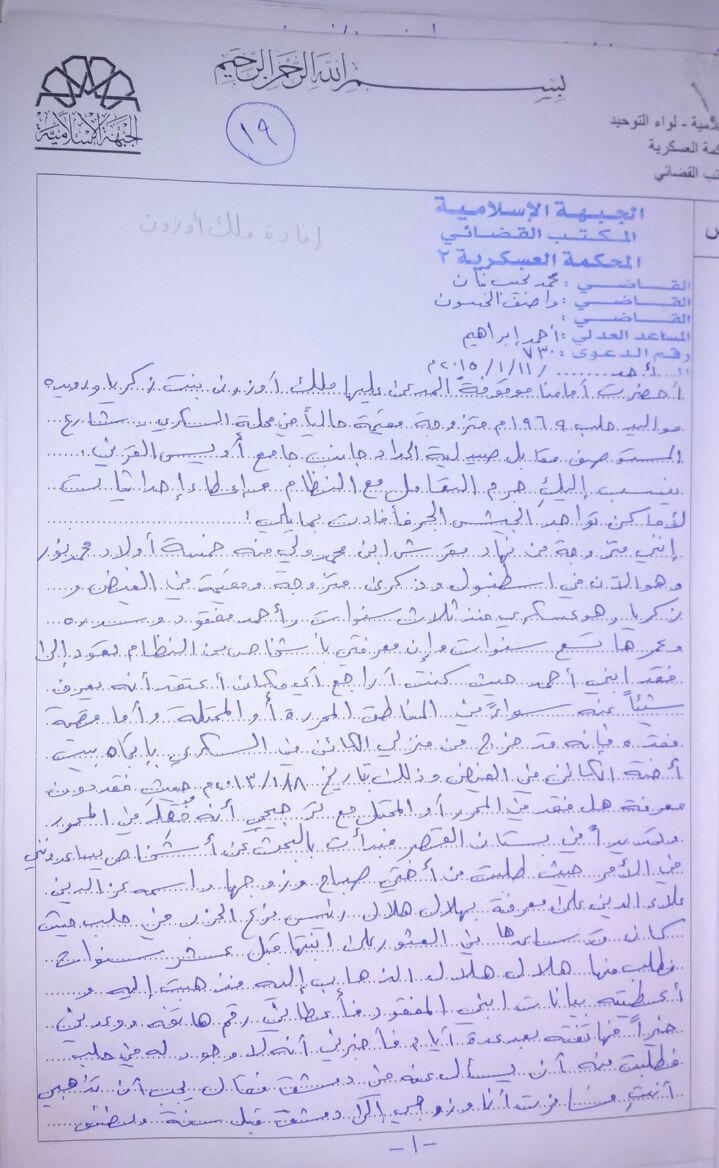 بسم الله الرحمن الرحيم
الجبهة الإسلامية
١٩
لامية - لواء التوحيد
كمة العسكرية
تب القضائي
الجبهة الإسلامية
المكتب القضائي
المحكمة العسكرية ٢
إفادة ملك أوزون
القاضي : محمد نجيب بنان
القاضي : واصف
القاضي :
المساعد العدلي : أحمد إبراهيم
رقم الدعوى : ٧٣٠
الأحد ٢٠١٥/١/١١م
أحضرت أمامنا موقوفة المدعى عليها ملك أوزون بنت زكريا و
مواليد حلب ١٩٦٩م متزوجة مقيمة حالياً في محلة السكري شارع
المستوصف مقابل صيدلية الحداد جانب جامع أويس القرني .
ينسب إليك جرم التعامل مع النظام وإعطاء إحداثيات
لأماكن تواجد الجيش الحر فأفادت بمايلي :
إنني متزوجة من نهاد ابن محمد ولي منه خمسة أولاد محمد نور
وهو الآن في اسطنبول وذكرى متزوجة ومقيمة في الفيض و
زكريا وهو عسكري منذ ثلاث سنوات وأحمد مفقود و
وعمرها تسع سنوات وإن معرفتي بأشخاص من النظام يعود إلى
فقد ابني أحمد حيث كنت أراجع أي مكان أعتقد أنه يعرف
شيئاً عنه سواء في المناطق المحررة أو المحتلة وأما قصة
فقده فإنه قد خرج من منزلي الكائن في السكري باتجاه بيت
أخته الكائن في الفيض وذلك بتاريخ ٢٠١٣/١/٨م حيث فقد دون
معرفة هل فقد في المحرر أو المحتل مع ترجيحي أنه فقد في المحرر
وتحديداً في بستان القصر فبدأت بالبحث عن أشخاص يساعدونني
في الأمر حيث طلبت من أختي صباح وزوجها واسمه عز الدين
علاء الدين على معرفة بهلال هلال رئيس فرع الحزب في حلب حيث
كان قد ساعدها في العثور على ابنتها قبل عشر سنوات
فطلب منها هلال هلال الذهاب إليه فذهبت إليه و
أعطيته بيانات ابني المفقود فأعطاني رقم هاتفه ووعدني
خيراً فهاتفته بعد عدة أيام فأخبرني أنه لا وجود له في حلب
فطلبت منه أن يسأل عنه في دمشق فقال يجب أن تذهبي
أنت فسافرت أنا وزوجي إلى دمشق قبل سنة ونصف
-١-